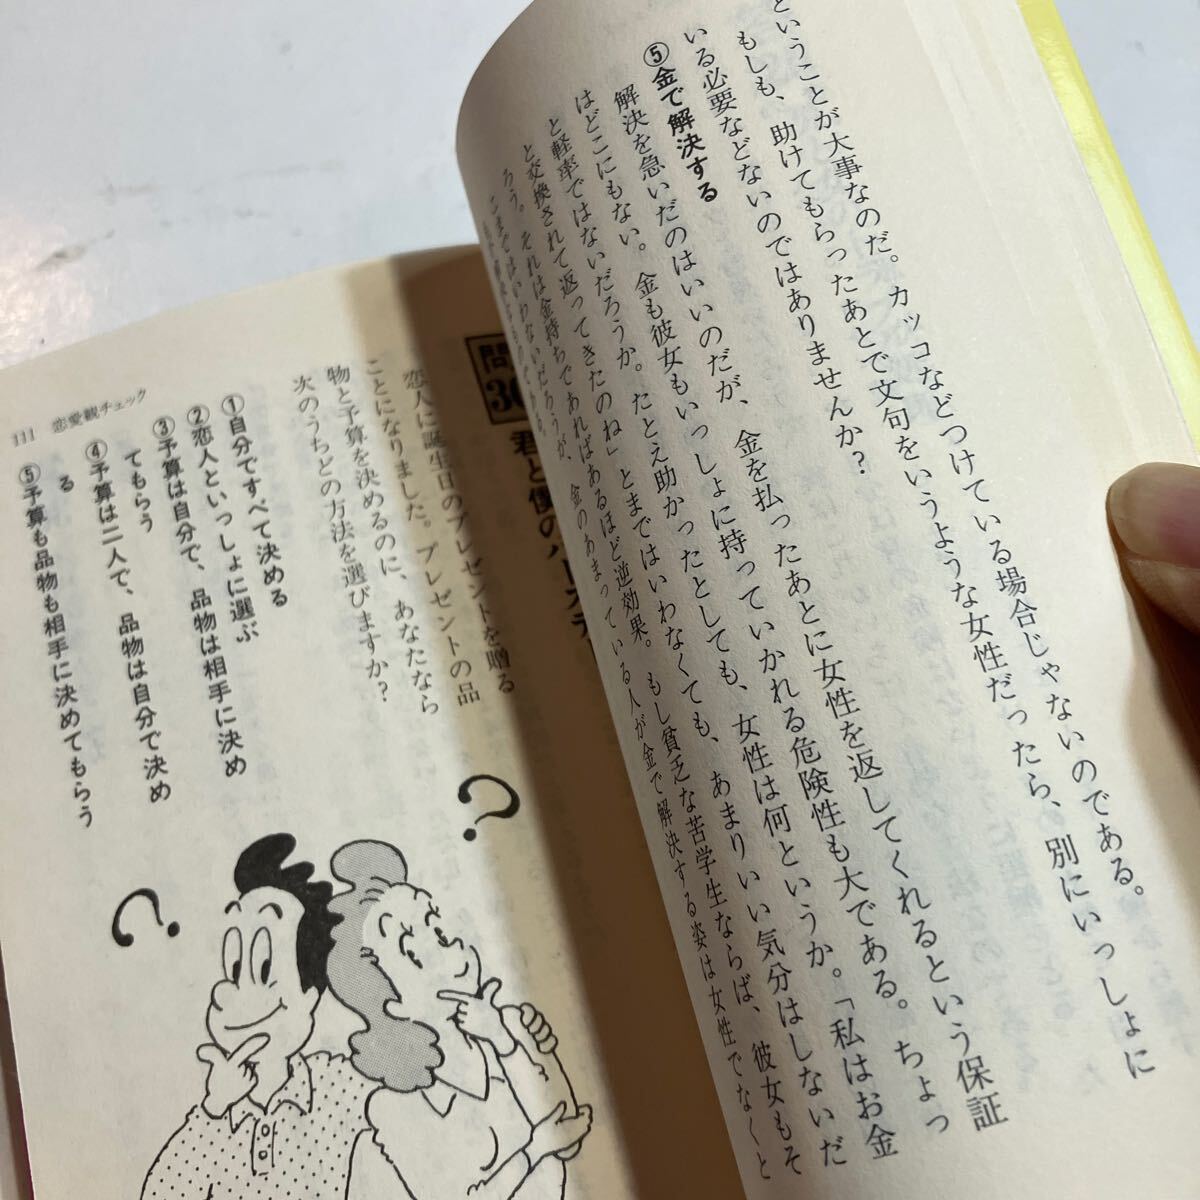 ということが大事なのだ。カッコなどつけている場合じゃないのである。
もしも、助けてもらったあとで文句をいうような女性だったら、別にいっしょに
いる必要などないのではありませんか?
⑤金で解決する
解決を急いだのはいいのだが、金を払ったあとに女性を返してくれるという保証
はどこにもない。金も彼女もいっしょに持っていかれる危険性も大である。ちょっ
と軽率ではないだろうか。たとえ助かったとしても、女性は何というか。「私はお金
と交換されて返ってきたのね」とまではいわなくても、あまりいい気分はしないだ
ろう。それは金持ちであればあるほど逆効果。もし貧乏な苦学生ならば、彼女もそ
こまではいわないだろうが、金のあまっている人が金で解決する姿は女性でなくと
問
君と僕の
恋人に誕生日のプレゼントを贈る
ことになりました。プレゼントの品
物と予算を決めるのに、あなたなら
次のうちどの方法を選びますか?
①自分ですべて決める
②恋人といっしょに選ぶ
③予算は自分で、品物は相手に決め
てもらう
④予算は二人で、品物は自分で決め
る
⑤予算も品物も相手に決めてもらう
111 恋愛観チェック
?
?